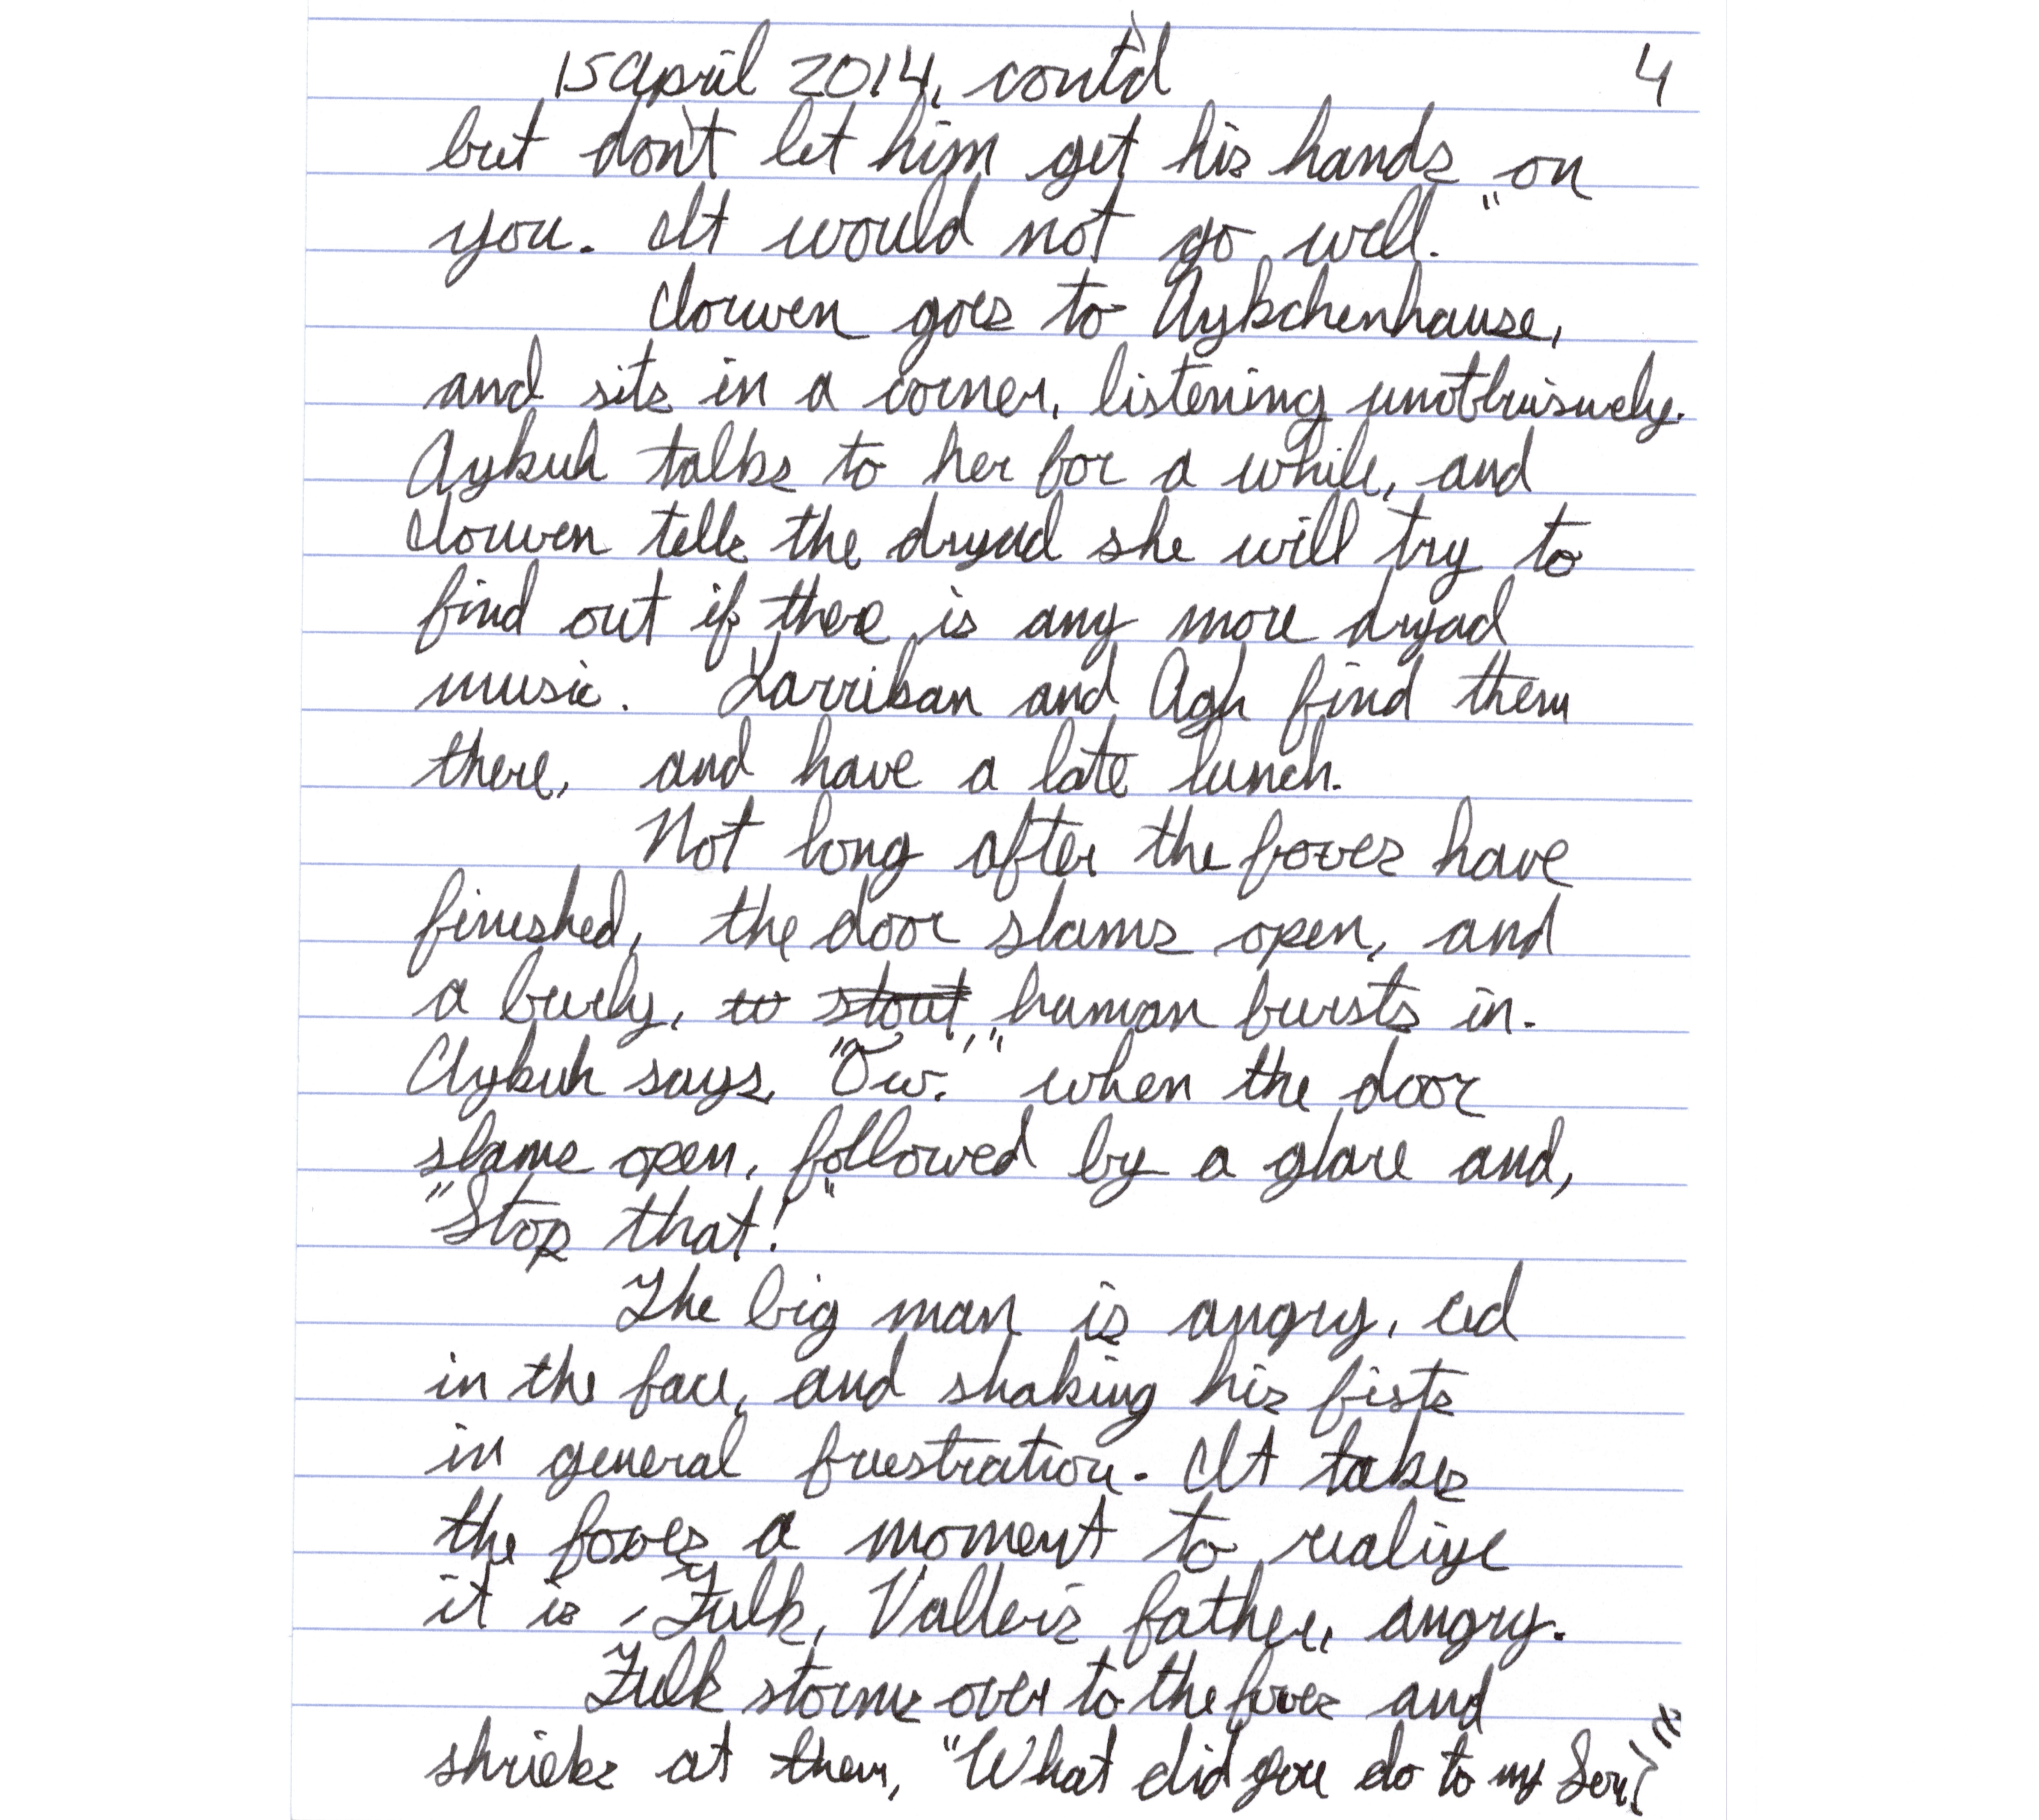 15 April 2014, cont'd 4
but don't let him get his hands on
you. It would not go well."
Iorwen goes to Aykchenhause,
and sits in a corner, listening unobtrusively.
Aykuh talks to her for a while, and
Iorwen tells the dryad she will try to
find out if there is any more dryad
music. Larriban and Agh find them
there, and have a late lunch.
Not long after the foxes have
finished, the door slams open, and
a burly, to stout, human bursts in.
Aykuh says, "Ow." when the door
slams open, followed by a glare and,
"Stop that!"
The big man is angry, red
in the face, and shaking his fists
in general frustration. It takes
the foxes a moment to realize
it is Fulk, Valler's father, angry.
Fulk storms over to the foxes and
shrieks at them, "What did you do to my Son?!"